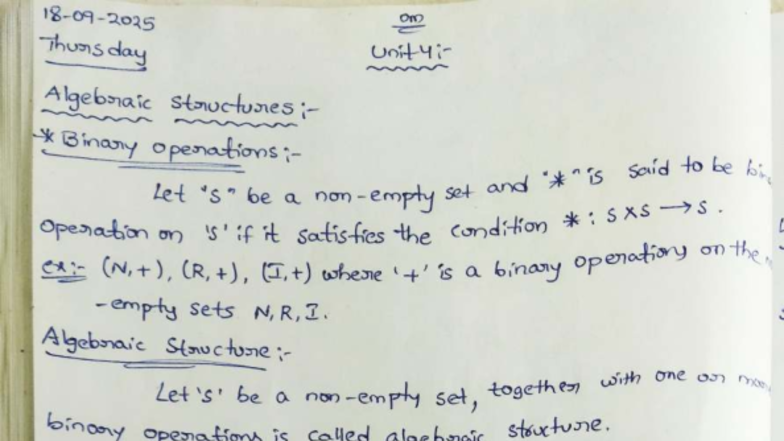 18-09-2025
om
Thursday
Unit 4:-
Algebraic Structures:-
* Binary operations:-
Let "S" be a non-empty set and "*" is said to be
operation on 'S' if it satisfies the condition * : S×S → S.
ex:- (N,+), (R,+), (I,+) where '+' is a binary operationy on the
-empty sets N, R, I.
Algebraic Structure:-
Let 'S' be a non-empty set, together with one or
binary operations is called algebraic structure.